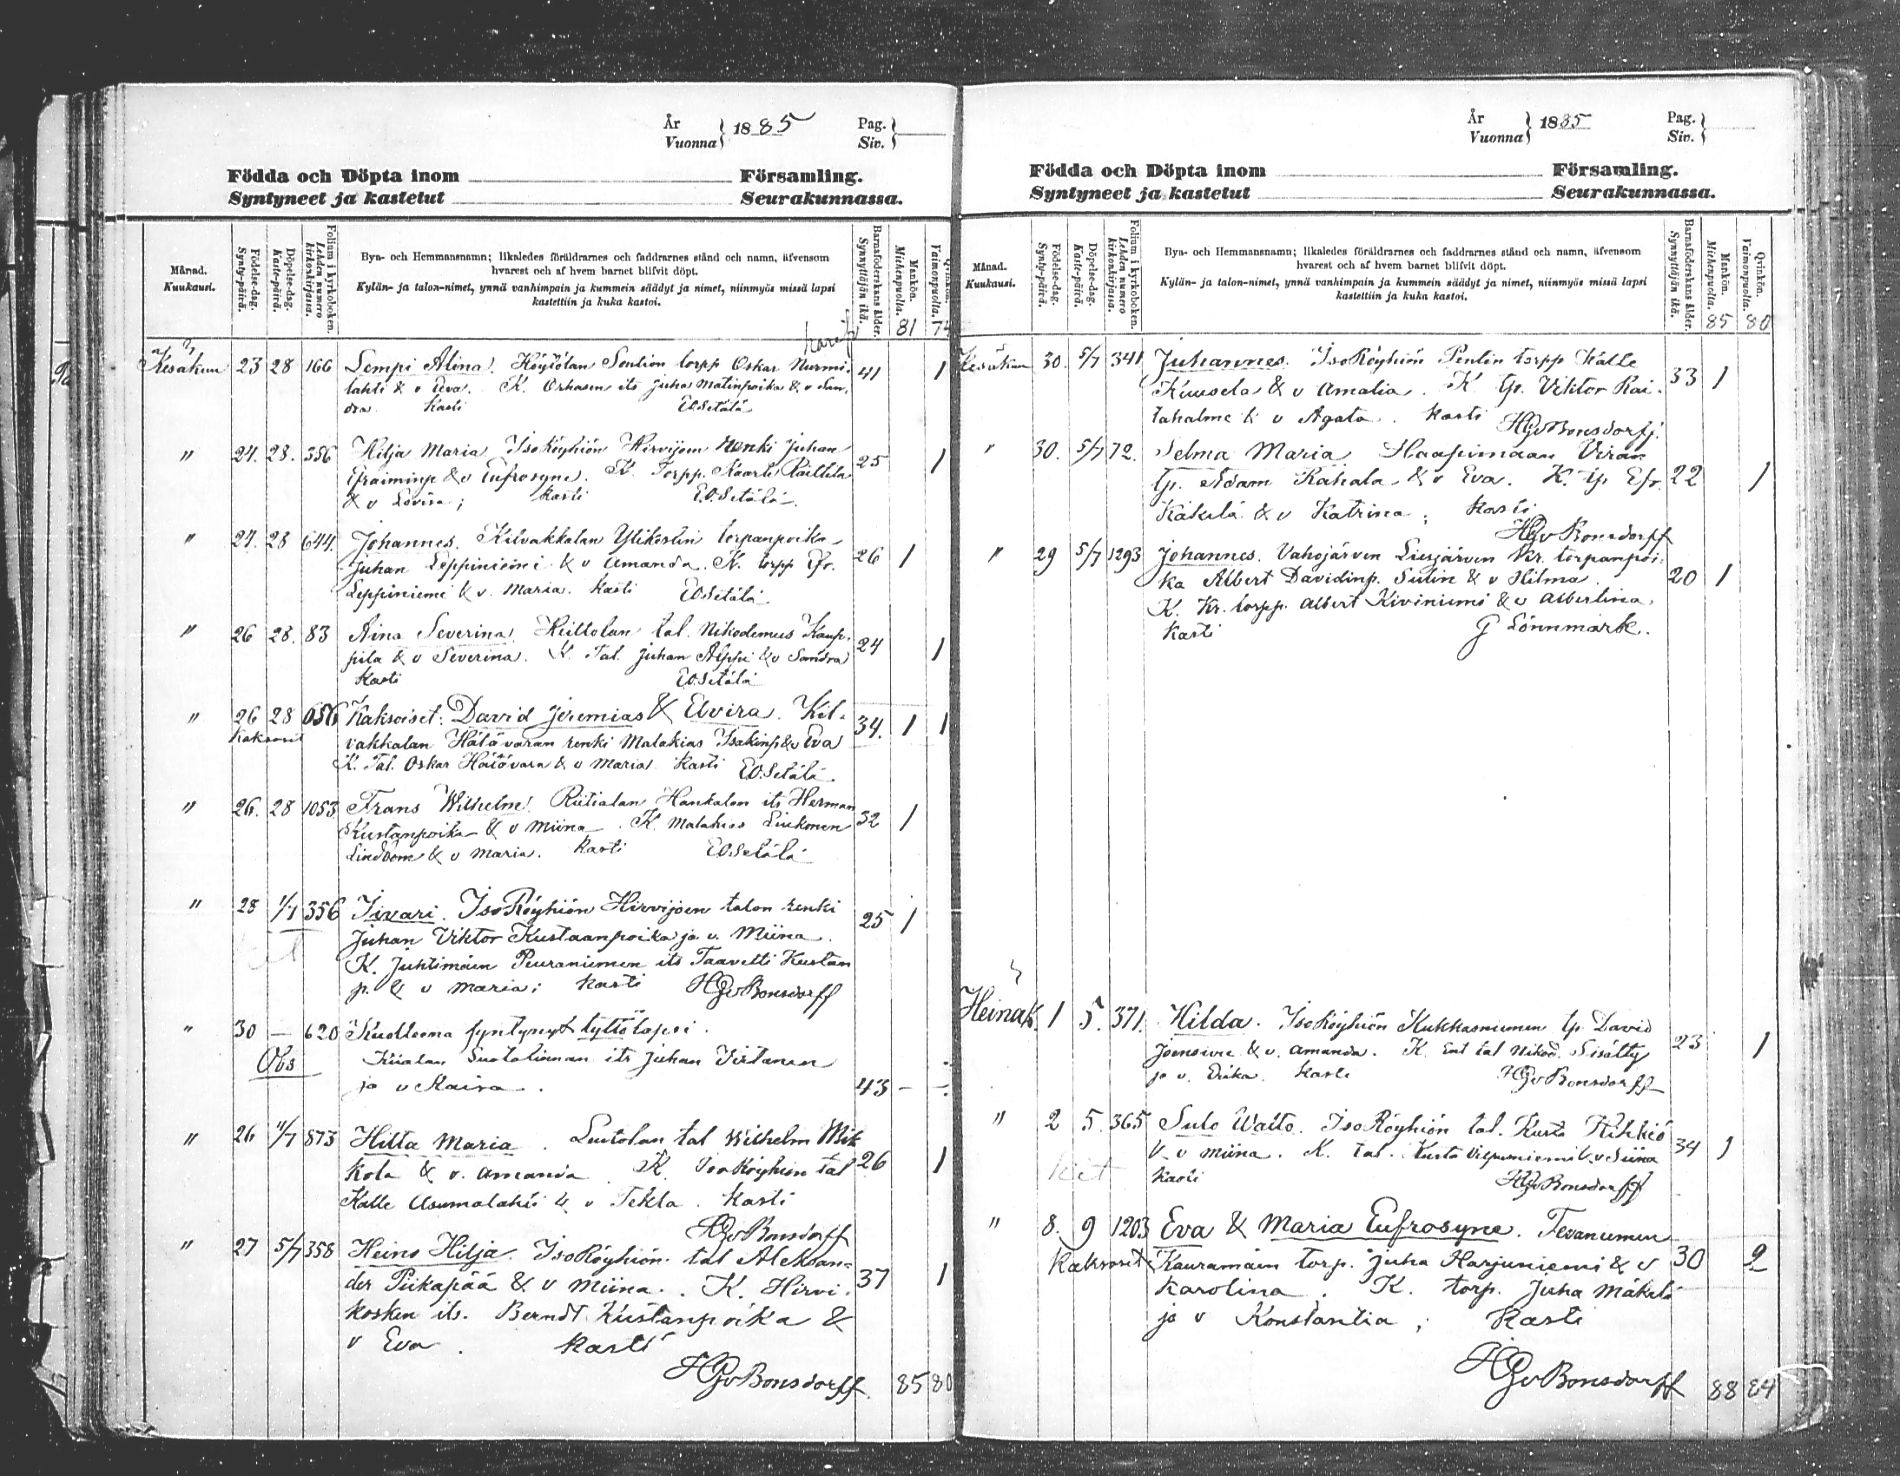 År
Vuonna
1885
Pag.
Siv.
Födda och Döpta inom Församling.
Syntyneet ja kastetut Seurakunnassa.
Månad.
Kuukausi.
Födelse-dag.
Synty-päivä.
Döpelse-dag.
Kaste-päivä.
Folium i kyrkoboken.
Lehden numero kirkonkirjassa.
Bya- och Hemmansnamn; likaledes föräldrarnes och faddrarnes stånd och namn, äfvensom
hvarest och af hvem barnet blifvit döpt.
Kylän- ja talon-nimet, ynnä vanhimpain ja kummein säädyt ja nimet, niinmyös missä lapsi
kastettiin ja kuka kastoi.
Barnaföderskans ålder.
Synnyttäjän ikä.
Mankön.
Miehenpuolta.
Qvinkön.
Vaimonpuolta.
81 74
Kesäkuu 23 28 166 Lempi Alina. Höytölän Sontion torpp Oskar Nurmi- 41 1
lahti & v Eva. K. its Juhas Matinpoika & v San-
dra kasti E.O.Setälä
" 24. 28. 356 Hilja Maria IsoRöyhiön Hirvijoen renki Juhan 25 1
Efraiminp & v Eufrosyne. K. Torpp. Kaarle
& v Lovisa; kasti E.O.Setälä.
" 24. 28 644. Johannes. Kilvakkalan Ylikestin torpanpoika 26 1
Juhan Leppiniemi & v Amanda. K. torpp Efr.
Leppiniemi & v. Maria. kasti E.O.Setälä
" 26 28. 83 Aina Severina. Heittolan tal. Nikodemus Kaup- 24 1
pila & v Severina. K. Tal. Juhan Alppi & v Sandra
kasti E.O.Setälä
" 26 28 656 Kaksoiset: David Jeremias & Elvira. Kil- 34. 1 1
kaksoset vakkalan Hätävaran renki Malakias Isakinp & v Eva
K. Tal. Oskar Hätävara & v Maria. kasti E.O.Setälä.
" 26. 28 1053 Frans Wilhelm. Riitialan Hankalan its Herman 32 1
Kustanpoika & v Miina. K. Malakias Liukonen
Lindbom & v Maria. kasti E.O.Setälä
" 28 1/7 356 Iivari. IsoRöyhiön Hirvijoen talon renki 25 1
Juhan Viktor Kustaanpoika ja v. Miina.
K. Juhtimäen Peuraniemen its Taavetti Kustan
p. & v Maria; kasti HGvBonsdorff
" 30 — 620 Kuolleena syntynyt tyttölapsi.
Obs Kiialan Suotalinnan its Juhan Virtanen
ja v Kaisa. 43 —
" 26 4/7 873 Hilta Maria. Luotolan tal Wilhelm Mik 26 1
kola & v. Amanda K. IsoRöyhiön tal
Kalle Asumalahti & v Tekla. kasti
HGvBonsdorff
" 27 5/7 358 Heino Hilja. IsoRöyhiön tal Aleksan- 37 1
der Piikapää & v Miina. K. Hirvi-
kosken its. Berndt Kustanpoika &
v Eva. kasti
HGvBonsdorff. 85 80
År
Vuonna
1885
Pag.
Siv.
Födda och Döpta inom Församling.
Syntyneet ja kastetut Seurakunnassa.
Månad.
Kuukausi.
Födelse-dag.
Synty-päivä.
Döpelse-dag.
Kaste-päivä.
Folium i kyrkoboken.
Lehden numero kirkonkirjassa.
Bya- och Hemmansnamn; likaledes föräldrarnes och faddrarnes stånd och namn, äfvensom
hvarest och af hvem barnet blifvit döpt.
Kylän- ja talon-nimet, ynnä vanhimpain ja kummein säädyt ja nimet, niinmyös missä lapsi
kastettiin ja kuka kastoi.
Barnaföderskans ålder.
Synnyttäjän ikä.
Mankön.
Miehenpuolta.
Qvinkön.
Vaimonpuolta.
85 80
Kesäkuu 30. 5/7 341 Juhannes. IsoRöyhiön Pentin torpp Kalle 33 1
Kuusela & v Amalia. K tp. Viktor Rai-
tahalme & v Agata. kasti HGvBonsdorff.
" 30. 5/7 72. Selma Maria Haapimaan Viran 22 1
tp. Adam Rahala & v Eva. K. tp Efr.
Käkelä & v Katrina; kasti
HGvBonsdorff
" 29 5/7 1293 Johannes. Vahojärven Liesjärven Kr. torpanpoi- 20 1
ka Albert Davidinp. Sulin & v Hilma.
K. Kr. torpp. Albert Kiviniemi & v Albertina.
kasti G Lönnmark.
Heinäk. 1 5. 371. Hilda. IsoRöyhiön Kukkasniemen tp David 23 1
Joensivu & v. Amanda. K. Ent tal Nikod. Sisätty
ja v. kasti HGvBonsdorff
" 2 5. 365 Sulo Walto. IsoRöyhiön tal. Kusta Rihkiö 34 1
& v Miina. K. tal. Kusta & v Siina
kasti HGvBonsdorff
" 8. 9 1203 Eva & Maria Eufrosyne. Tevaniemen 30 2
kaksoset Kauramäin torp. Juha Harjuniemi & v
Karolina. K. torp. Juha Mäkelä
ja v Konstantia; Kasti
HGvBonsdorff 88 84